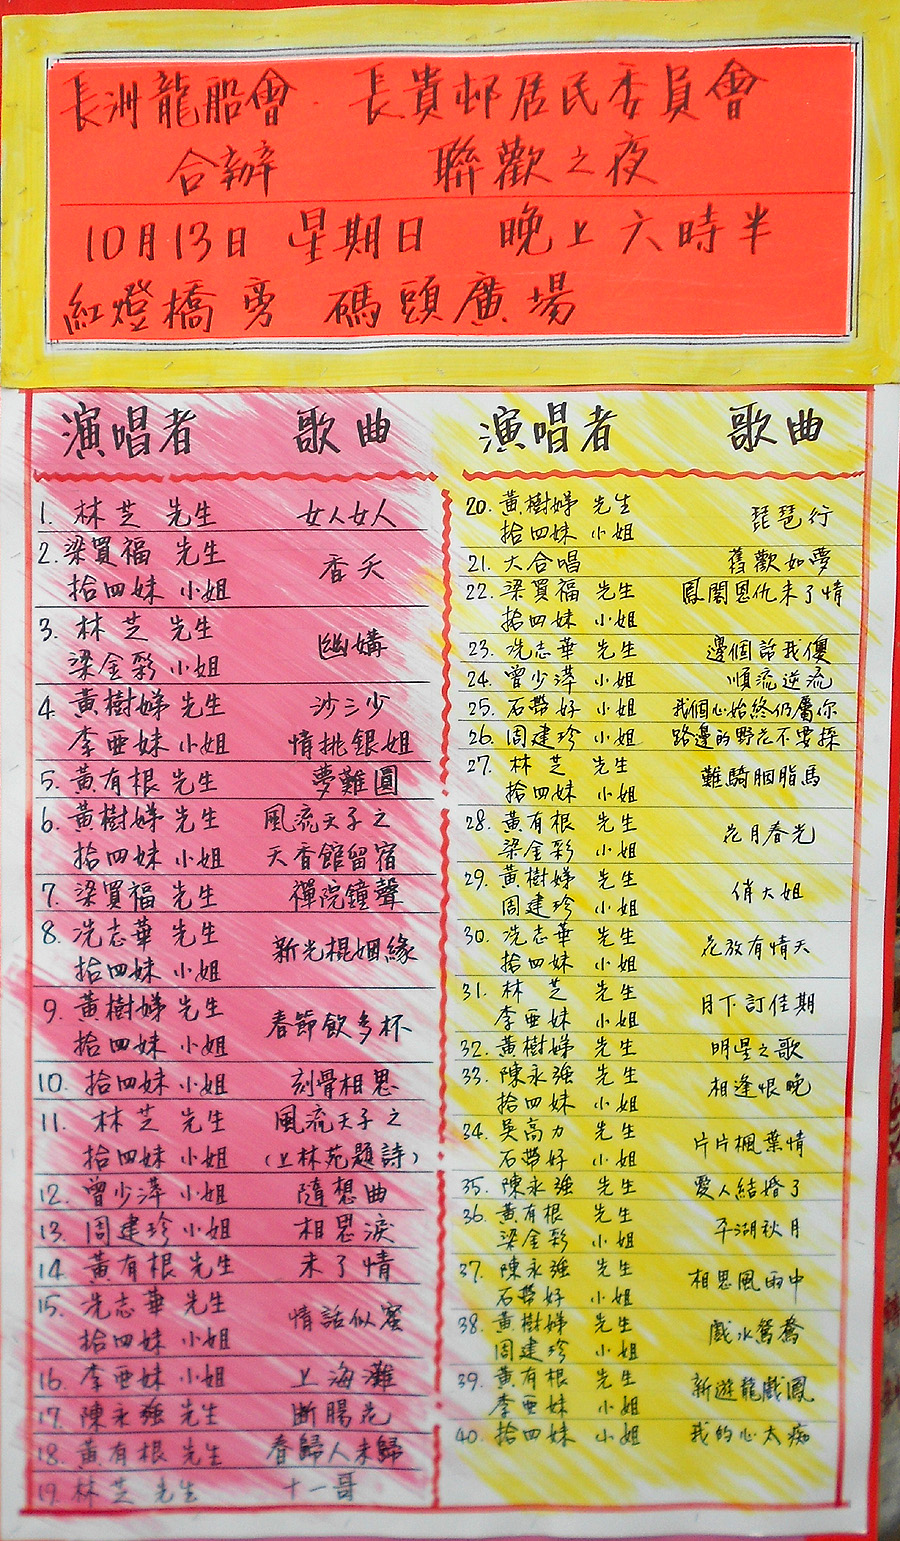 長洲龍船會 · 長貴邨居民委員會
合辦 聯歡之夜
10月13日 星期日 晚上六時半
紅燈橋旁 碼頭廣場
演唱者 歌曲
1. 林芝 先生 女人女人
2. 梁買福 先生
拾四妹 小姐 香夭
3. 林芝 先生
梁金彩 小姐 幽媾
4. 黃樹娣 先生 沙三少
李亜妹 小姐 情挑銀姐
5. 黃有根 先生 夢難圓
6. 黃樹娣 先生 風流天子之
拾四妹 小姐 天香館留宿
7. 梁買福 先生 禪院鐘聲
8. 冼志華 先生
拾四妹 小姐 新光棍姻緣
9. 黃樹娣 先生
拾四妹 小姐 春節飲多杯
10. 拾四妹 小姐 刻骨相思
11. 林芝 先生 風流天子之
拾四妹 小姐 (上林苑題詩)
12. 曾少萍 小姐 隨想曲
13. 周建珍 小姐 相思淚
14. 黃有根 先生 未了情
15. 冼志華 先生
拾四妹 小姐 情話似蜜
16. 李亜妹 小姐 上海灘
17. 陳永強 先生 斷腸花
18. 黃有根 先生 春歸人未歸
19. 林芝 先生 十一哥
演唱者 歌曲
20. 黃樹娣 先生
拾四妹 小姐 琵琶行
21. 大合唱 舊歡如夢
22. 梁買福 先生 鳳閣恩仇未了情
拾四妹 小姐
23. 冼志華 先生 邊個話我傻
24. 曾少萍 小姐 順流逆流
25. 石帶好 小姐 我個心始終仍屬你
26. 周建珍 小姐 路邊的野花不要採
27. 林芝 先生
拾四妹 小姐 難騎胭脂馬
28. 黃有根 先生
梁金彩 小姐 花月春光
29. 黃樹娣 先生
周建珍 小姐 俏大姐
30. 冼志華 先生
拾四妹 小姐 花放有情天
31. 林芝 先生
李亜妹 小姐 月下訂佳期
32. 黃樹娣 先生 明星之歌
33. 陳永強 先生
拾四妹 小姐 相逢恨晚
34. 吳高力 先生
石帶好 小姐 片片楓葉情
35. 陳永強 先生 愛人結婚了
36. 黃有根 先生
梁金彩 小姐 平湖秋月
37. 陳永強 先生
石帶好 小姐 相思風雨中
38. 黃樹娣 先生
周建珍 小姐 戲水鴛鴦
39. 黃有根 先生
李亜妹 小姐 新遊龍戲鳳
40. 拾四妹 小姐 我的心太痴